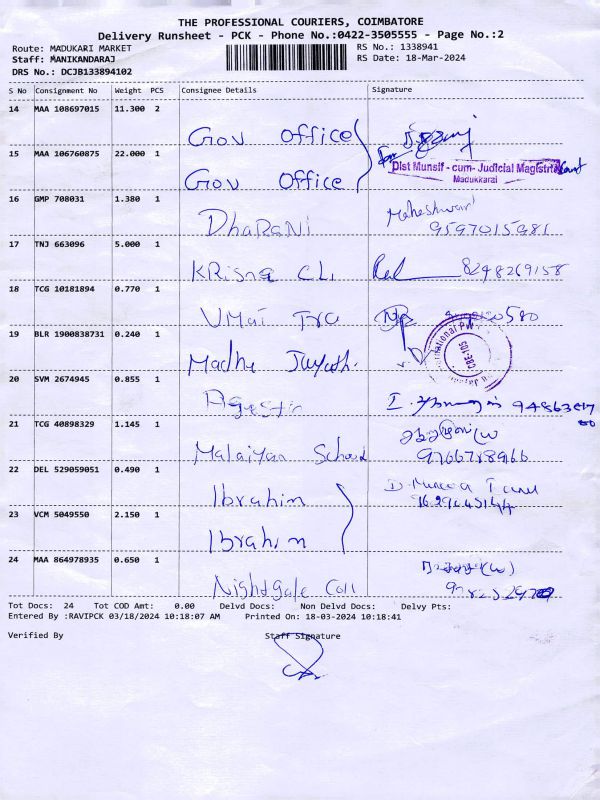 THE PROFESSIONAL COURIERS, COIMBATORE
Delivery Runsheet - PCK - Phone No.:0422-3505555 - Page No.:2
Route: MADUKARI MARKET RS No.: 1338941
Staff: MANIKANDARAJ RS Date: 18-Mar-2024
DRS No.: DCJB133894102
S No Consignment No Weight PCS Consignee Details Signature
14 MAA 108697015 11.300 2 Gov office
15 MAA 106760875 22.000 1 Gov Office
Dist Munsif - cum- Judicial Magistrate
Madukkarai
16 GMP 708031 1.380 1 DhaRaNi Maheshwari
9597015981
17 TNJ 663096 5.000 1 KRisna CLi 8248269158
18 TCG 10181894 0.770 1 UMai
19 BLR 1900838731 0.240 1 Madhu
CBE-105
20 SVM 2674945 0.855 1
21 TCG 40898329 1.145 1 Malaiyan School 9766788966
22 DEL 529059051 0.490 1 Ibrahim
23 VCM 5049550 2.150 1 Ibrahim
24 MAA 864978935 0.650 1 Nightgale Coll
Tot Docs: 24 Tot COD Amt: 0.00 Delvd Docs: Non Delvd Docs: Delvy Pts:
Entered By :RAVIPCK 03/18/2024 10:18:07 AM Printed On: 18-03-2024 10:18:41
Verified By Staff Signature